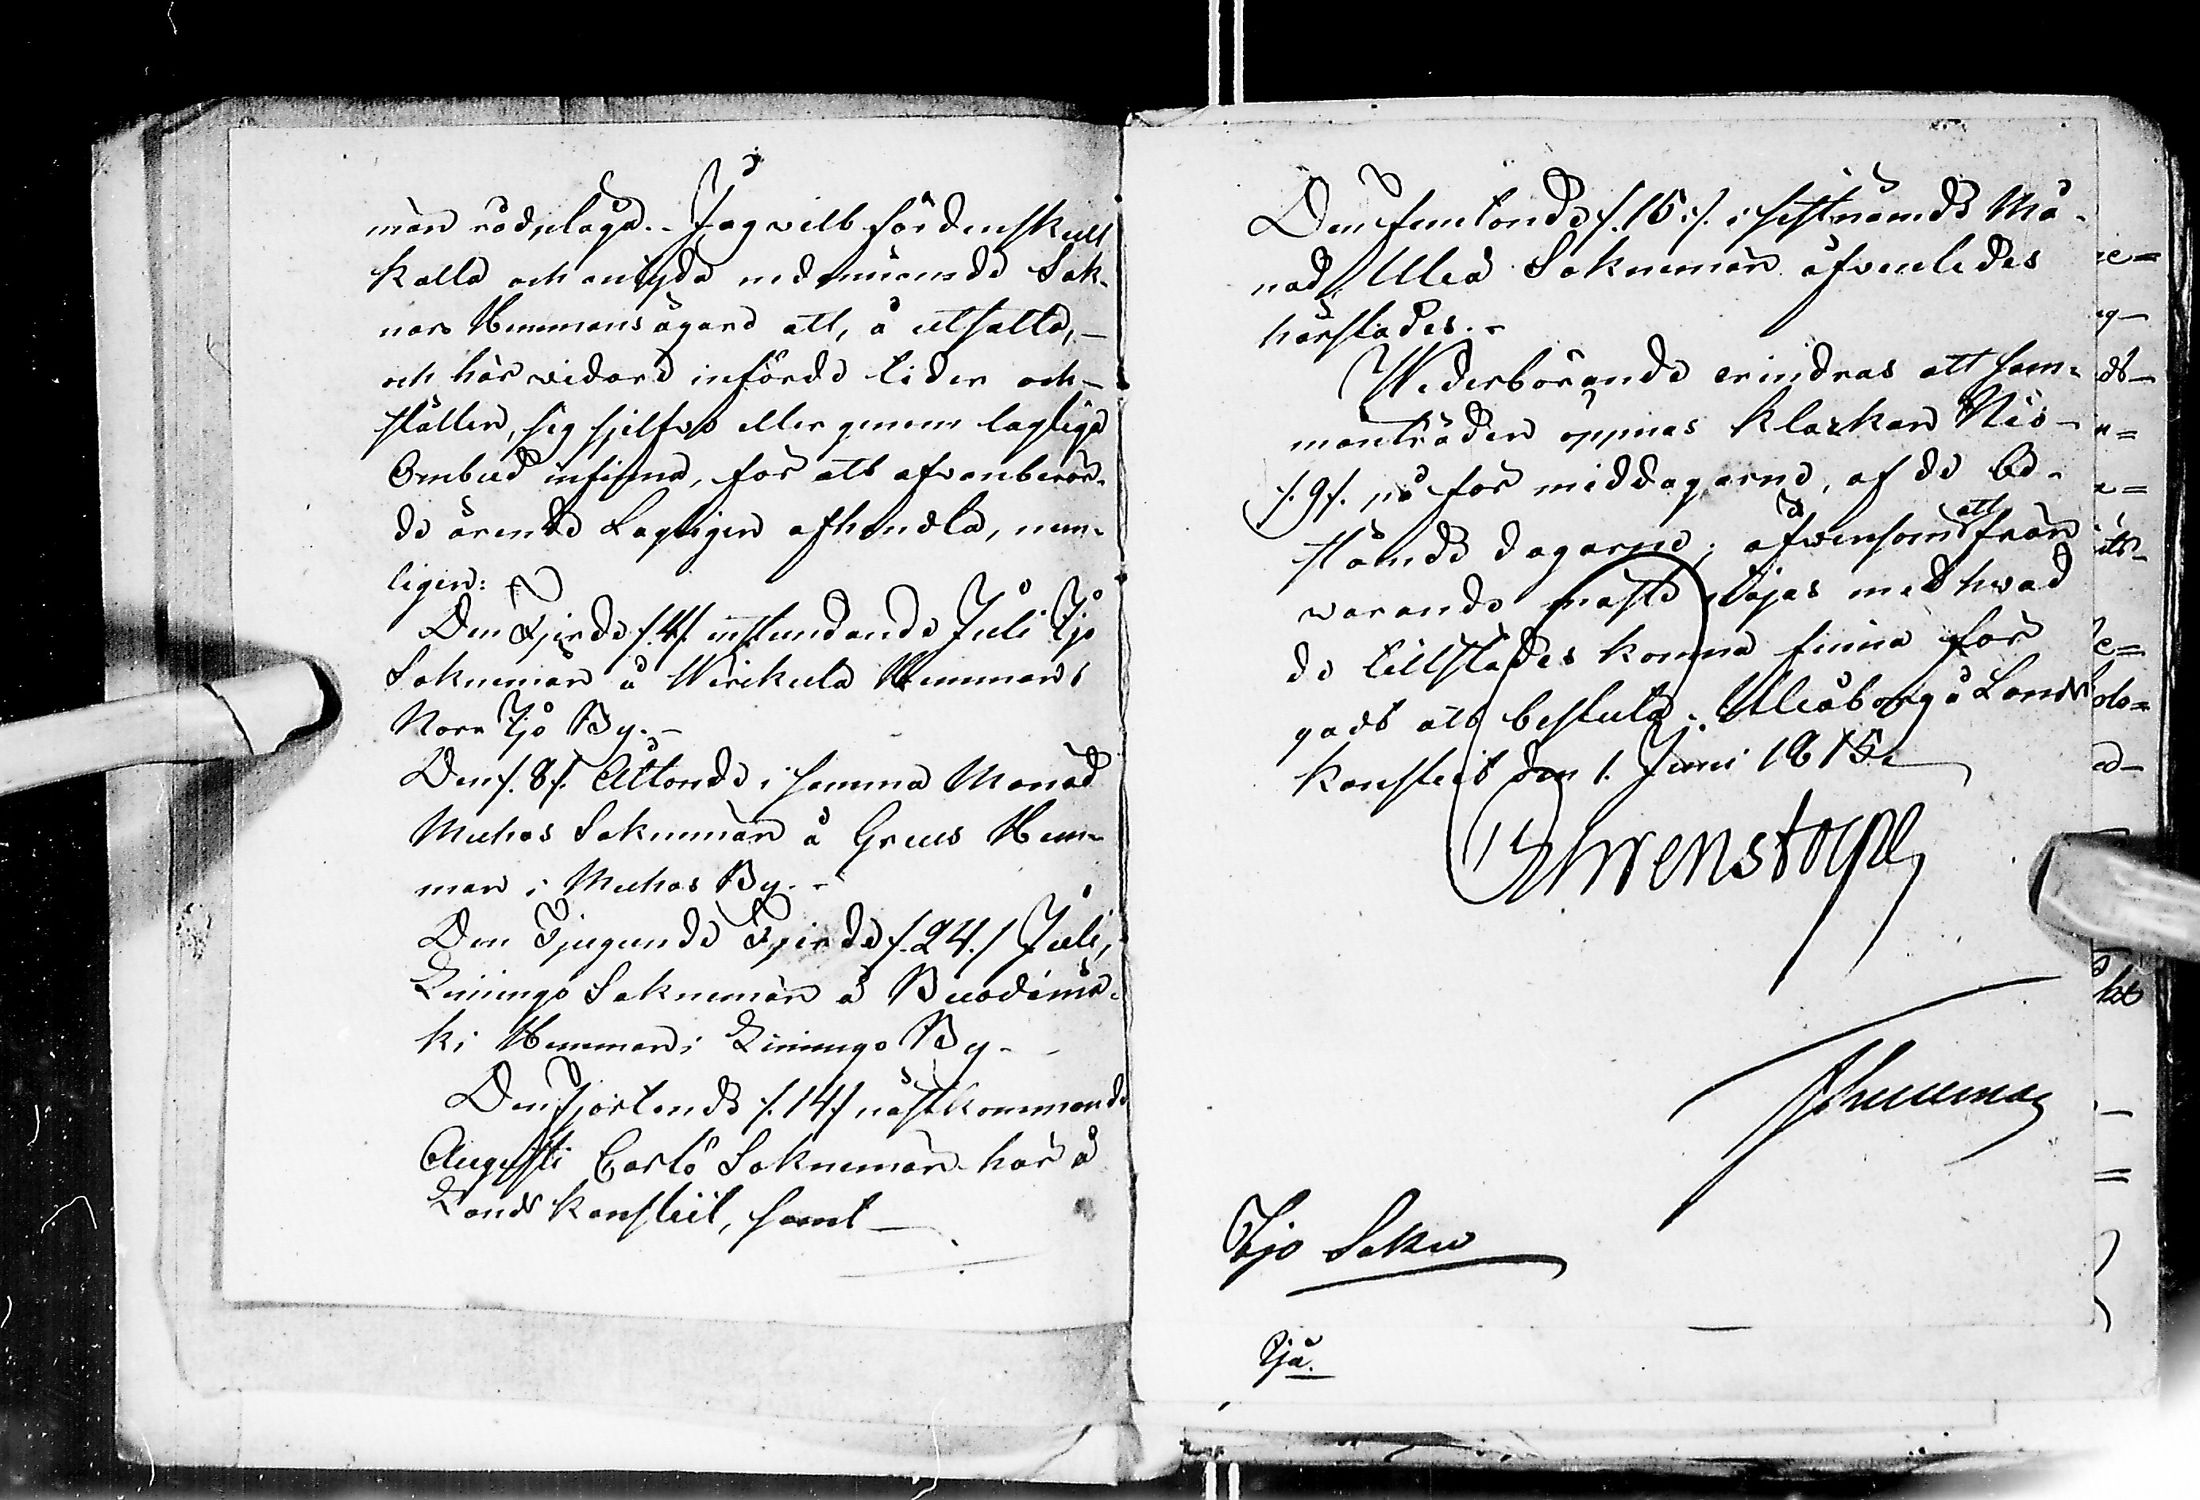 män rådplåga. - Jag vill fördenskull
kalla och anlyda nedannämnde Sok-
nars Hemmansägare att, å utsatta, -
och här widare införde tider och -
ställen, sig sjelfve eller genom laglige
Ombud infinna, för att ofvanberör-
de ärende Lagligen afhandla, nem-
ligen:
Den Fjerde /.4/. instundande Juli Ijo
Soknemän å Wirikula Hemman i
Norr Ijo By. -
Den /.8/. Åttonde i samma Månad
Muhos Soknemän å Greus Hem-
man i Muhos By. -
Den Tjugunde Fjerde /.24./ Juli,
Limingo Soknemän å
ki Hemman i Limingo By -
Den Fjortonde /.14/ nästkommande
Augusti Carlö Soknemän här å
Lands Kansliit, samt -
Den femtonde /.15./. i sistnämde Må-
nad Uleå Soknemän äfvenledes
härstädes. -
Wederbörande erindras att sam-
manträden öppnas klockan Nio -
/.9/. på för middagarne, af de be-
stämde dagarne; äfvensom att från
warande måste nöjas med hwad
de tillstädes komna finna för
godt att besluta. Uleåborg å Lands
Kansliit den 1. Juni 1815.
Ehrenstolpe
Ijo Sokn